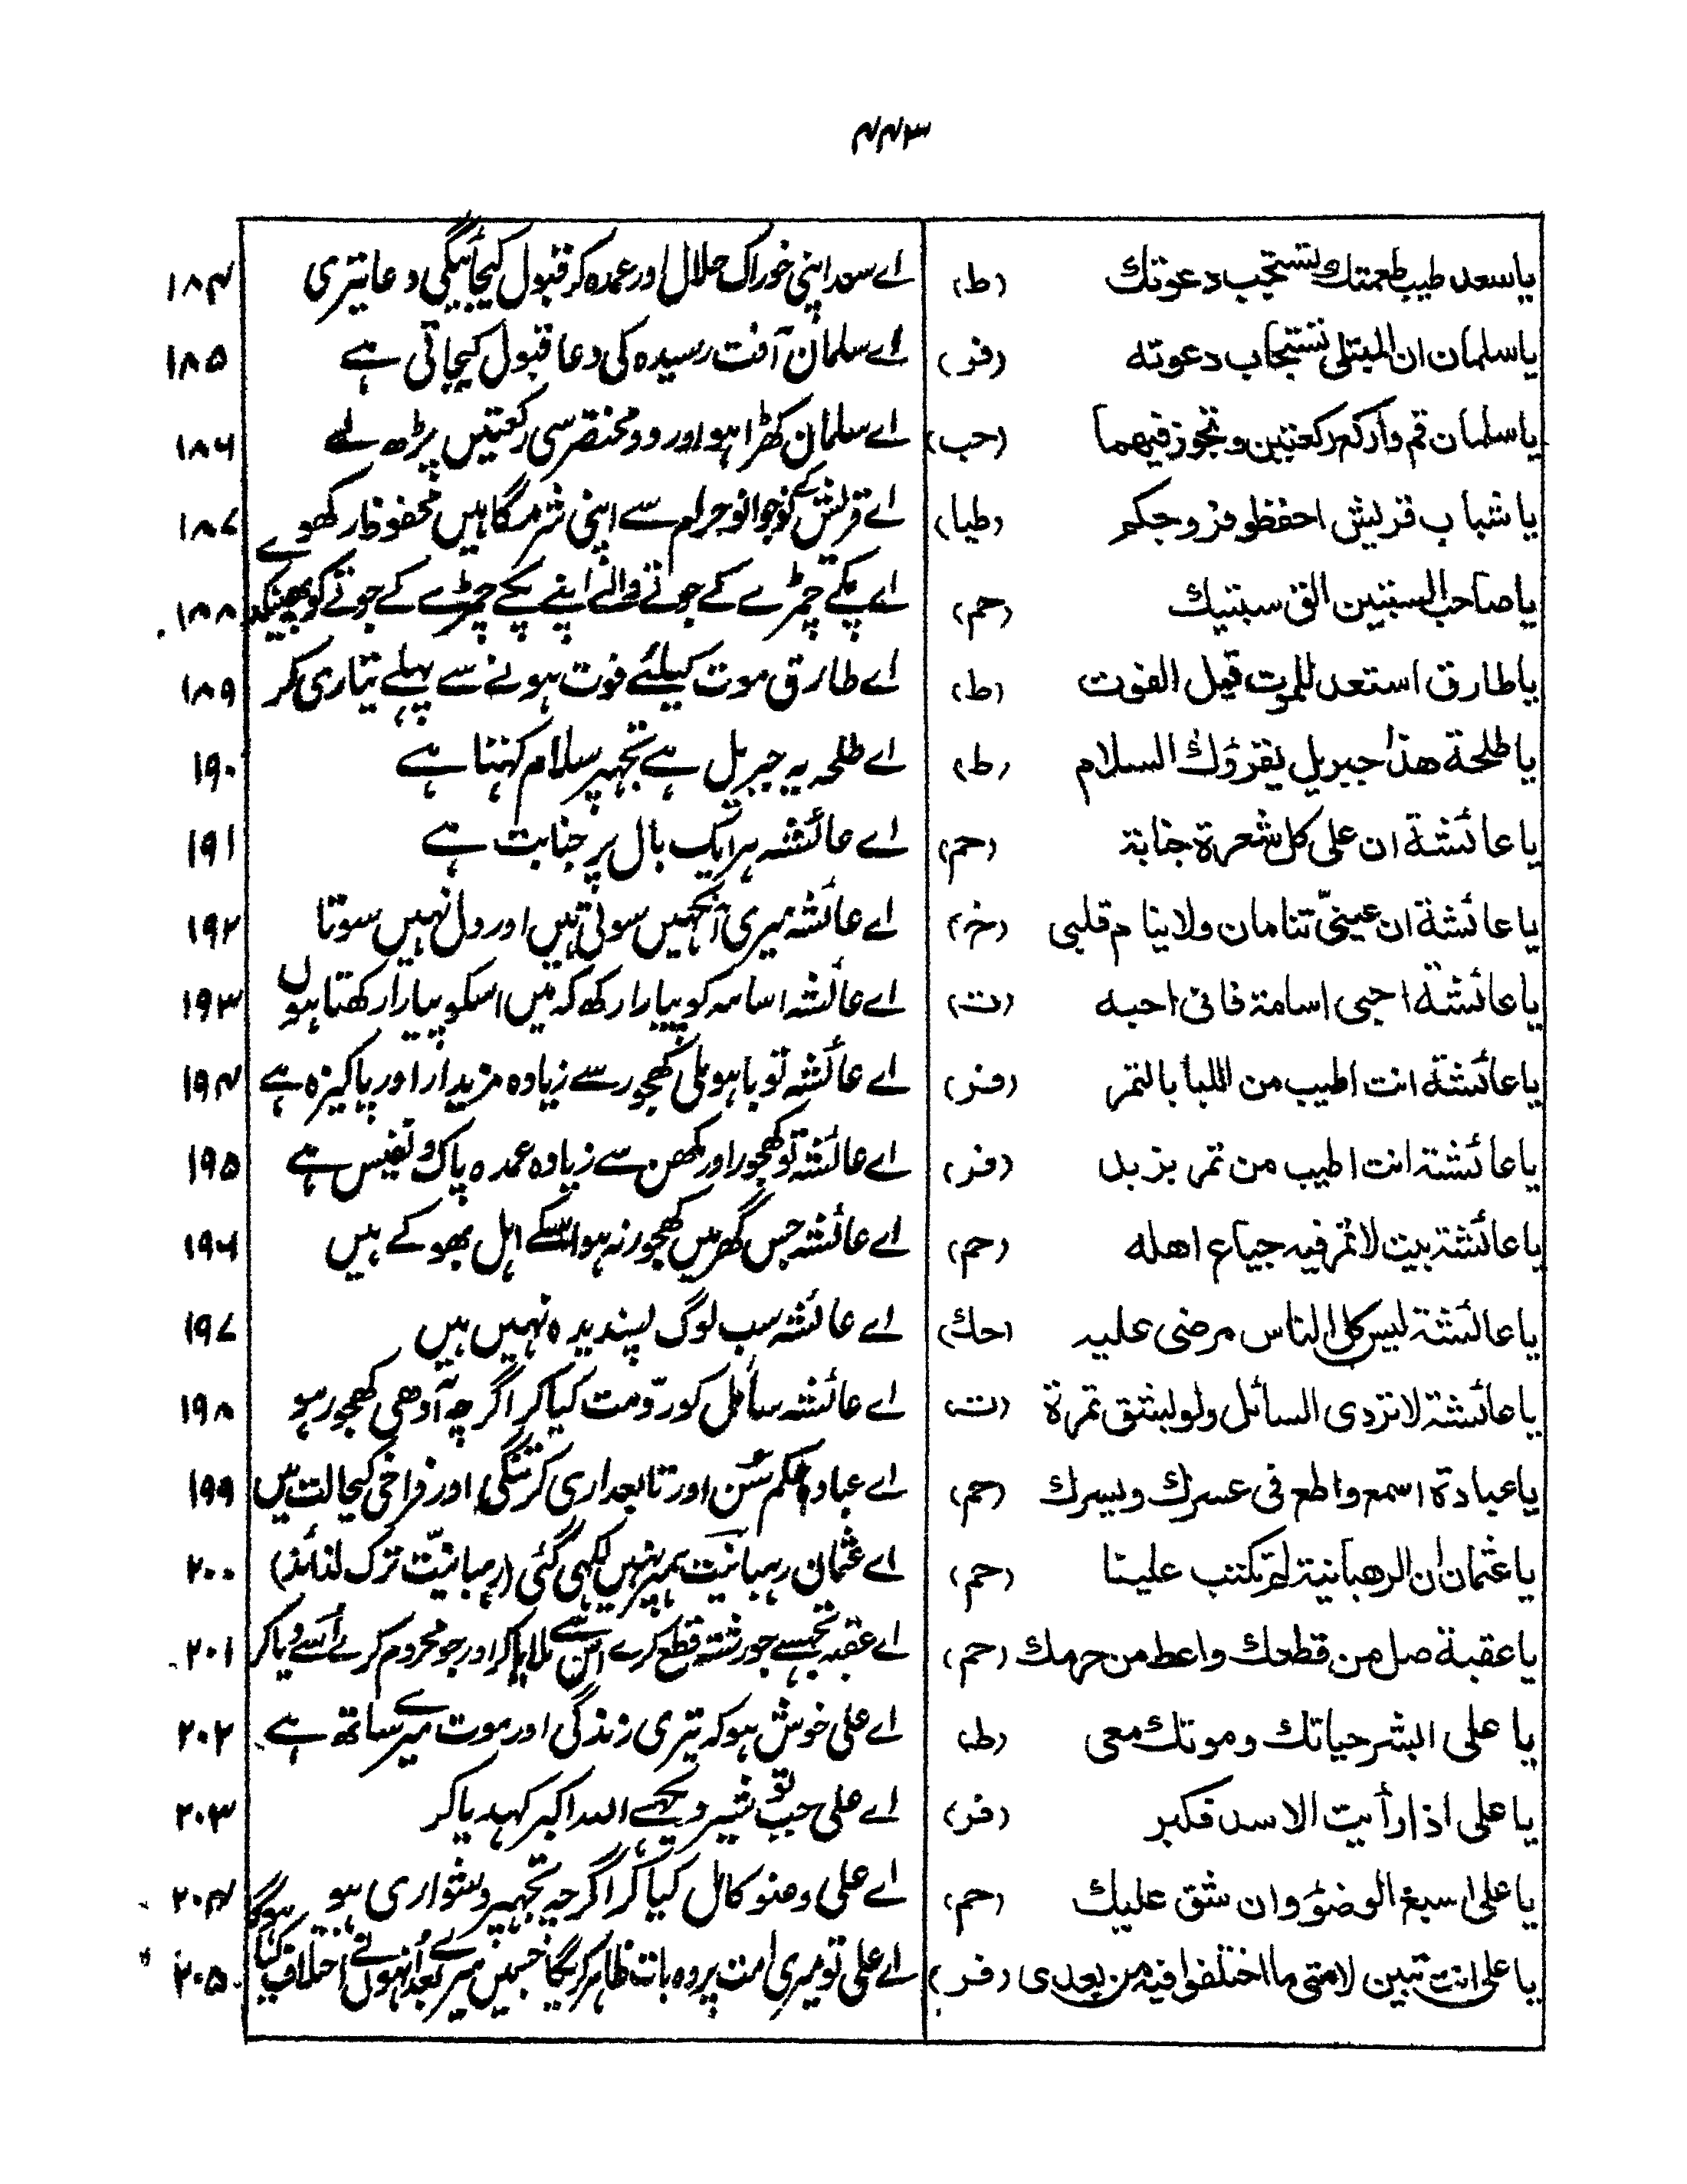 ۴۴۳
يا سعد طيب طعمتك تستجب دعوتك (ط) اے سعد اپنی خوراک حلال اور عمدہ کر قبول کیجائیگی دعا تیری ۱۸۴
يا سلمان ان المبتلى تستجاب دعوته (فر) اے سلمان آفت رسیدہ کی دعا قبول کیجاتی ہے ۱۸۵
يا سلمان قم واركع ركعتين وتجوز فيهما (حب) اے سلمان کھڑا ہو اور دو مختصر سی رکعتیں پڑھ لے ۱۸۶
يا شباب قريش احفظو فروجكم (طيا) اے قریش کے نوجوانو حرام سے اپنی شرمگاہیں محفوظ رکھو ۱۸۷
يا صاحب السبتين الق سبتيك (حم) اے پکے چمڑے کے جوتے والے اپنے پکے چمڑے کے جوتے کو پھینکدے ۱۸۸
يا طارق استعد للموت قبل الفوت (ط) اے طارق موت کیلئے فوت ہونے سے پہلے تیاری کر ۱۸۹
يا طلحة هذا جبريل يقرؤك السلام (ط) اے طلحہ یہ جبریل ہے تجہپر سلام کہتا ہے ۱۹۰
يا عائشة ان على كل شعرة جنابة (حم) اے عائشہ ہر ایک بال پر جنابت ہے ۱۹۱
يا عائشة ان عينيّ تنامان ولا ينام قلبى (خ) اے عائشہ میری آنکہیں سوتی ہیں اور دل نہیں سوتا ۱۹۲
يا عائشة احبى اسامة فانى احبه (ت) اے عائشہ اسامہ کو پیارا رکھ کہ میں اسکو پیارا رکھتا ہوں ۱۹۳
يا عائشة انت اطيب من اللبأ بالتمر (فر) اے عائشہ تو باہولی کھجور سے زیادہ مزیدار اور پاکیزہ ہے ۱۹۴
يا عائشة انت اطيب من تمر بزبد (فر) اے عائشہ تو کھجور اور مکھن سے زیادہ عمدہ پاک و نفیس ہے ۱۹۵
يا عائشة بيت لا تمر فيه جياع اهله (حم) اے عائشہ جس گھر میں کھجور نہ ہو اسکے اہل بھوکے ہیں ۱۹۶
يا عائشة ليس كل الناس مرضى عليه (حك) اے عائشہ سب لوگ پسندیدہ نہیں ہیں ۱۹۷
يا عائشة لا تردى السائل ولو بشق تمرة (ت) اے عائشہ سائل کو ردّ مت کیا کر اگرچہ آدھی کھجور ہو ۱۹۸
يا عبادة اسمع واطع فى عسرك ويسرك (حم) اے عبادہ حکم سُن اور تابعداری کر تنگی اور فراخی کیحالت میں ۱۹۹
يا عثمان ان الرهبانية لم تكتب علينا (حم) اے عثمان رہبانیت ہمپر نہیں لکہی گئی (رہبانیّت ترک لذائذ) ۲۰۰
يا عقبة صل من قطعك واعط من حرمك (حم) اے عقبہ تجہسے جو رشتہ قطع کرے اس سے ملایا کر اور جو محروم کرے اُسے دیا کر ۲۰۱
يا على ابشر حياتك وموتك معى (ط) اے علی خوش ہو کہ تیری زندگی اور موت میرے ساتھ ہے ۲۰۲
يا على اذا رأيت الاسد فكبر (فر) اے علی جب تو شیر دیکہے اللہ اکبر کہدیا کر ۲۰۳
يا على اسبغ الوضوٴ وان شق عليك (حم) اے علی وضو کامل کیا کر اگرچہ تجہپر دشواری ہو ۲۰۴
يا على انت تبين لامتى ما اختلفوا فيه من بعدى (فر) اے علی تو میری امت پر وہ بات ظاہر کریگا جسمیں میرے بعد اُنہوں نے اختلاف کیا ہوگا ۲۰۵